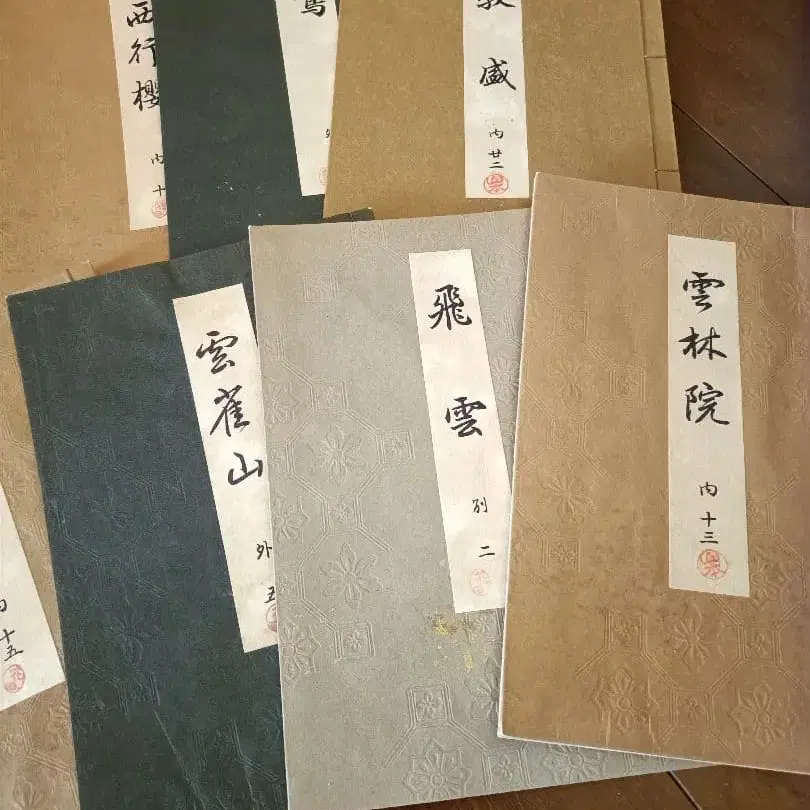 西行櫻
内十
鸞
外
敦盛
内廿二
雲雀山
外五
飛雲
別二
雲林院
内十三
内十五